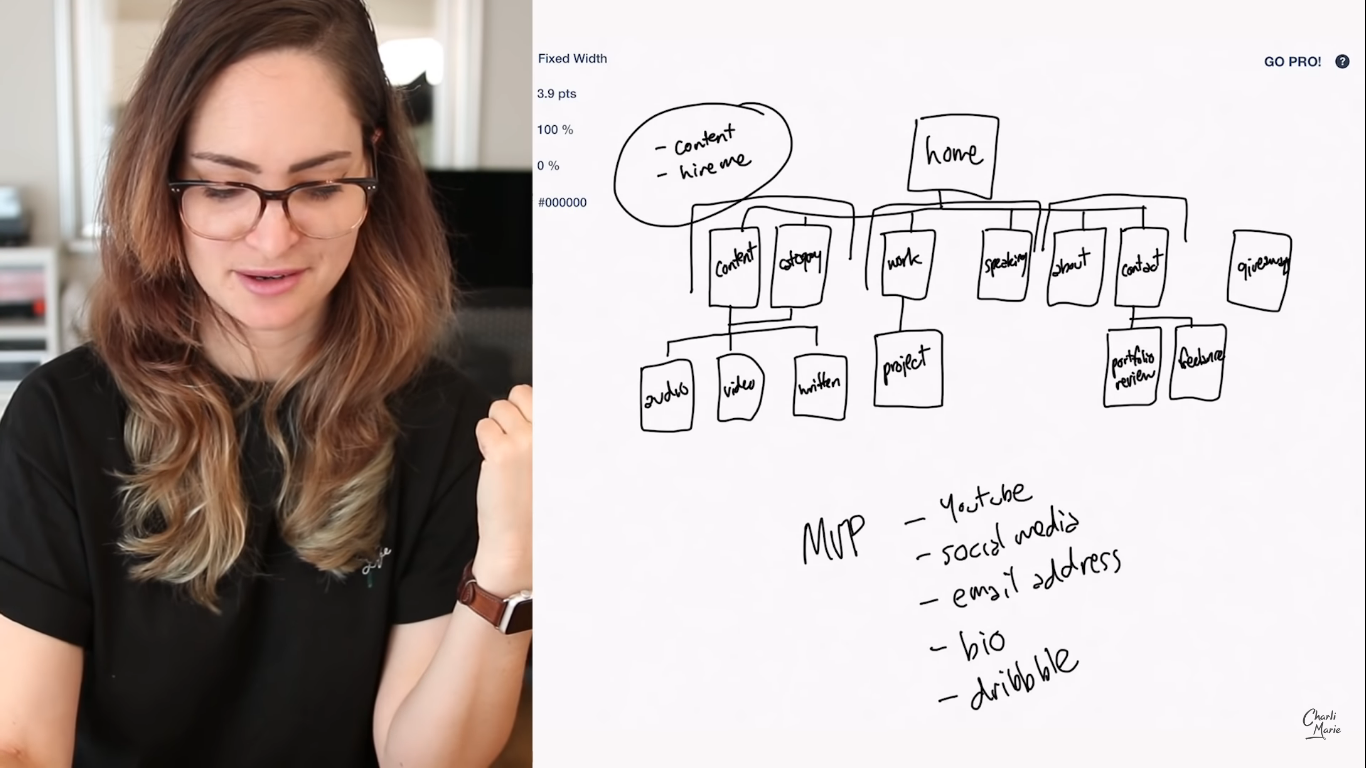 Fixed Width
GO PRO! ?
3.9 pts
100 %
0 %
#000000
- content
- hire me
home
content
category
work
speaking
about
contact
giveaway
audio
video
written
project
portfolio
review
freelance
MVP
- Youtube
- social media
- email address
- bio
- dribbble
Charli
Marie